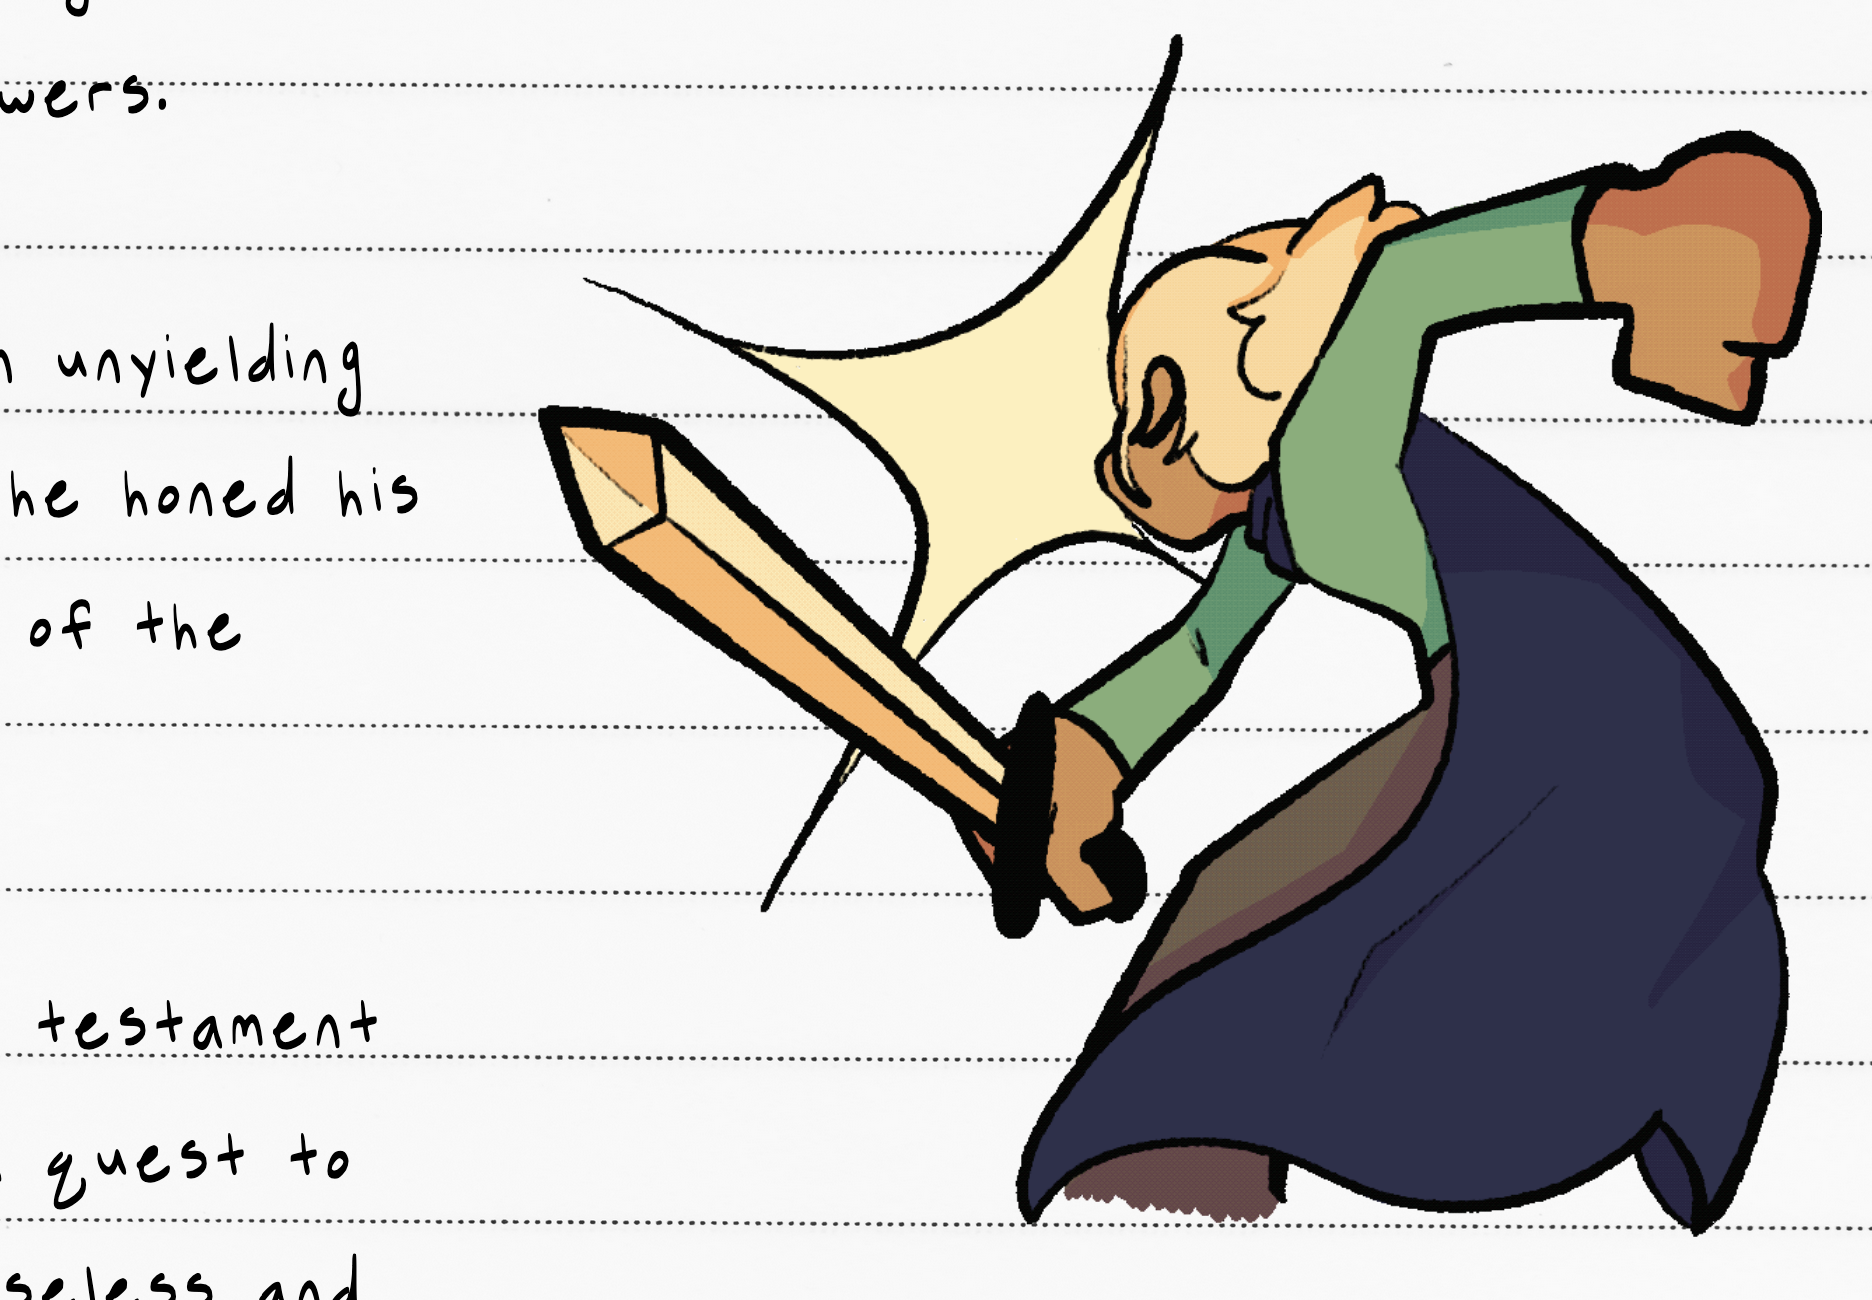 wers.
unyielding
he honed his
of the
testament
quest to
seless and